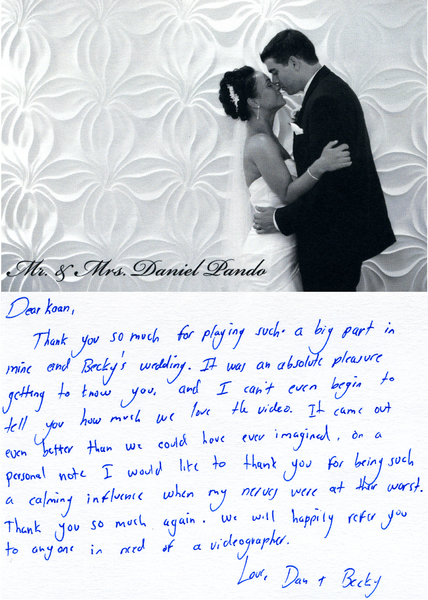 Mr. & Mrs. Daniel Pando
Dear Kaan,
Thank you so much for playing such a big part in
mine and Becky's wedding. It was an absolute pleasure
getting to know you, and I can't even begin to
tell you how much we love the video. It came out
even better than we could have ever imagined. On a
personal note I would like to thank you for being such
a calming influence when my nerves were at their worst.
Thank you so much again. We will happily refer you
to anyone in need of a videographer.
Love, Dan + Becky